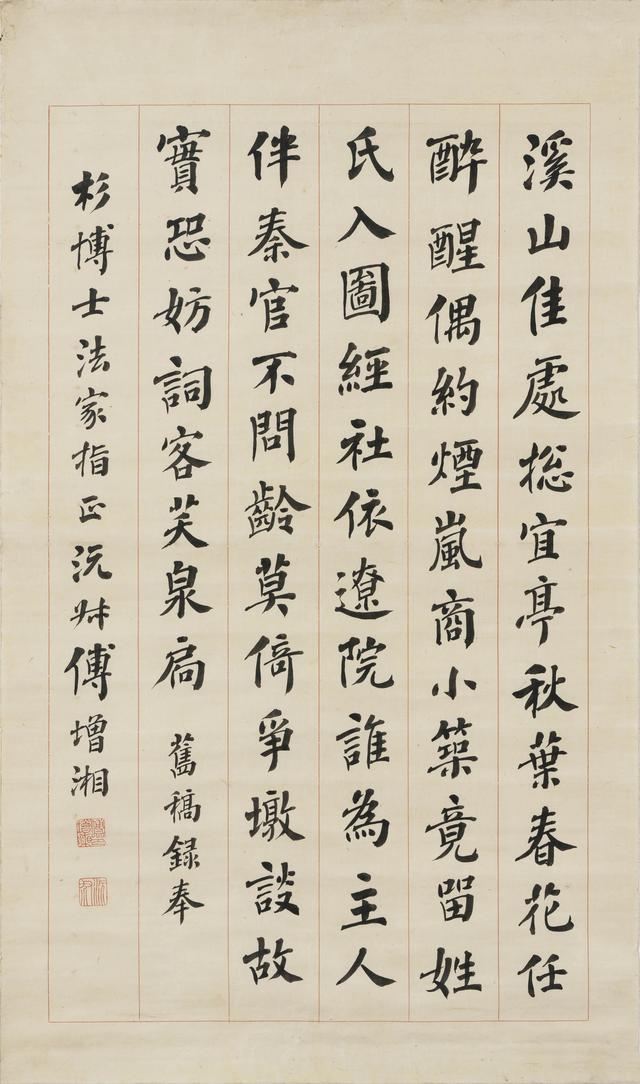 溪山佳處揔宜亭秋葉春花任
醉醒偶約煙嵐商小築竟留姓
氏入圖經社依遼院誰為主人
伴秦官不問齡莫倚爭墩談故
實恐妨詞客笑泉扃 舊稿録奉
杉博士法家指正沅叔傅增湘